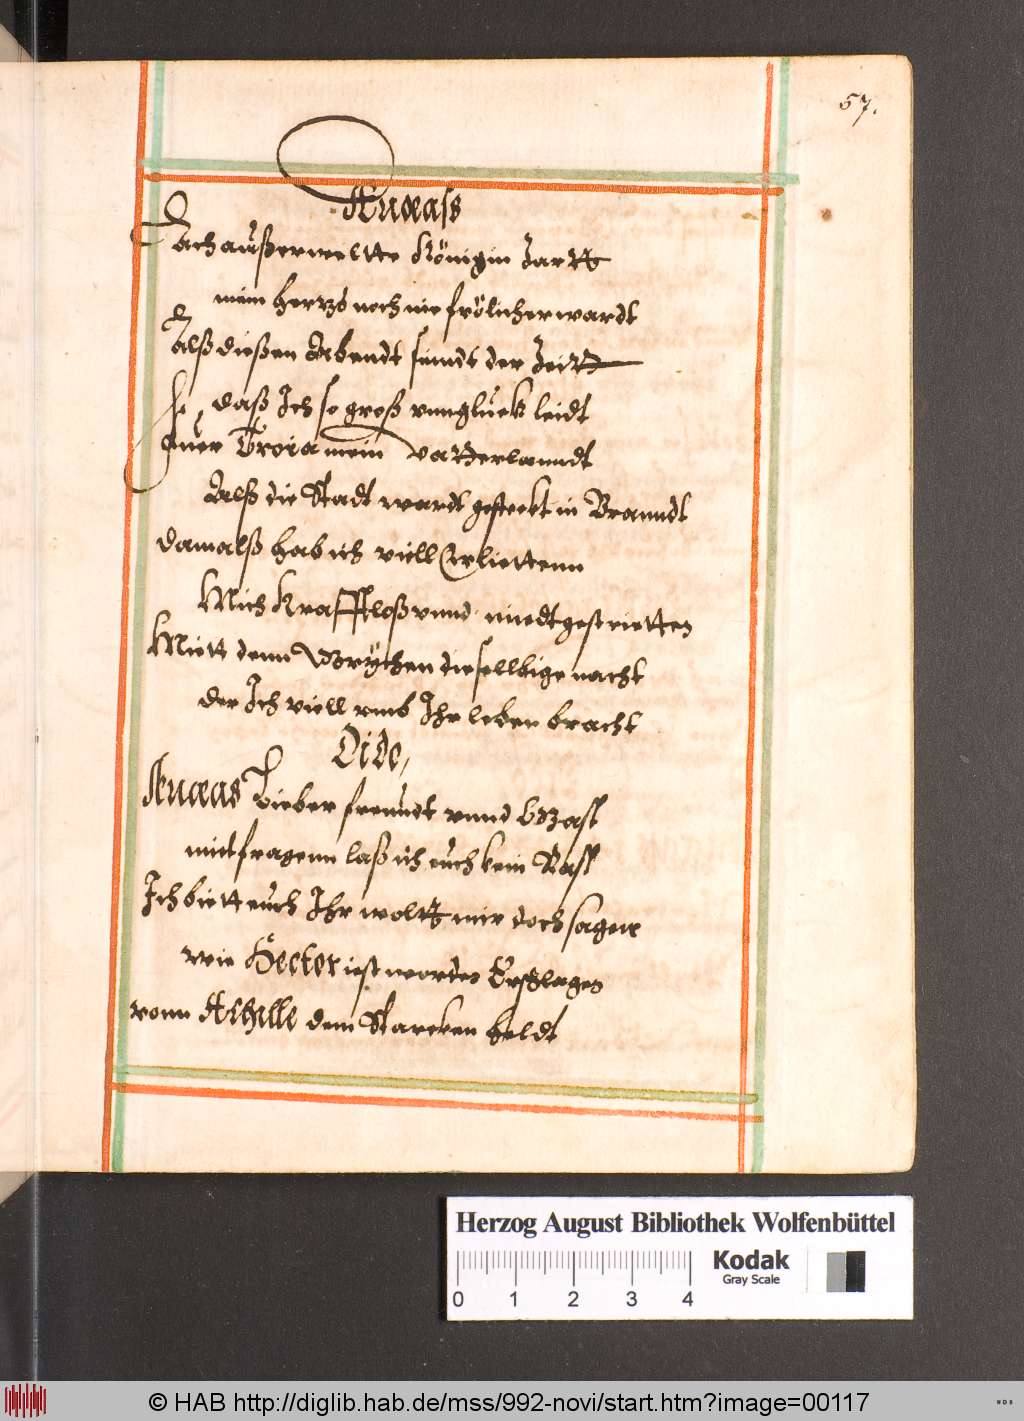 57.
Æneass
Ach außerweltte Königin Zartt
mein hertzs noch nie frölicher wardt
Alß dießen Abendt seindt der Zeitt
daß Ich so groß vnngluck leidt
fuer Troia mein Vatterlanndt
Alß die Stadt wardt gesteckt in Branndt
damalß hab ich viell Erliettenn
Mich Krafftloß vnnd miedt gestrietten
Mitt denn Grÿchen die sellbige nacht
der Ich viell vmb Ihr leben bracht
Dido,
Æneas Lieber freundt vnnd Gast
mitt fragenn laß ich euch kein Rast
Ich bitt euch Ihr woltt mir doch sagen
wie Hector ist worden Erschlagen
vonn Achille dem Starcken heldt
Herzog August Bibliothek Wolfenbüttel
Kodak
Gray Scale
0 1 2 3 4
© HAB http://diglib.hab.de/mss/992-novi/start.htm?image=00117